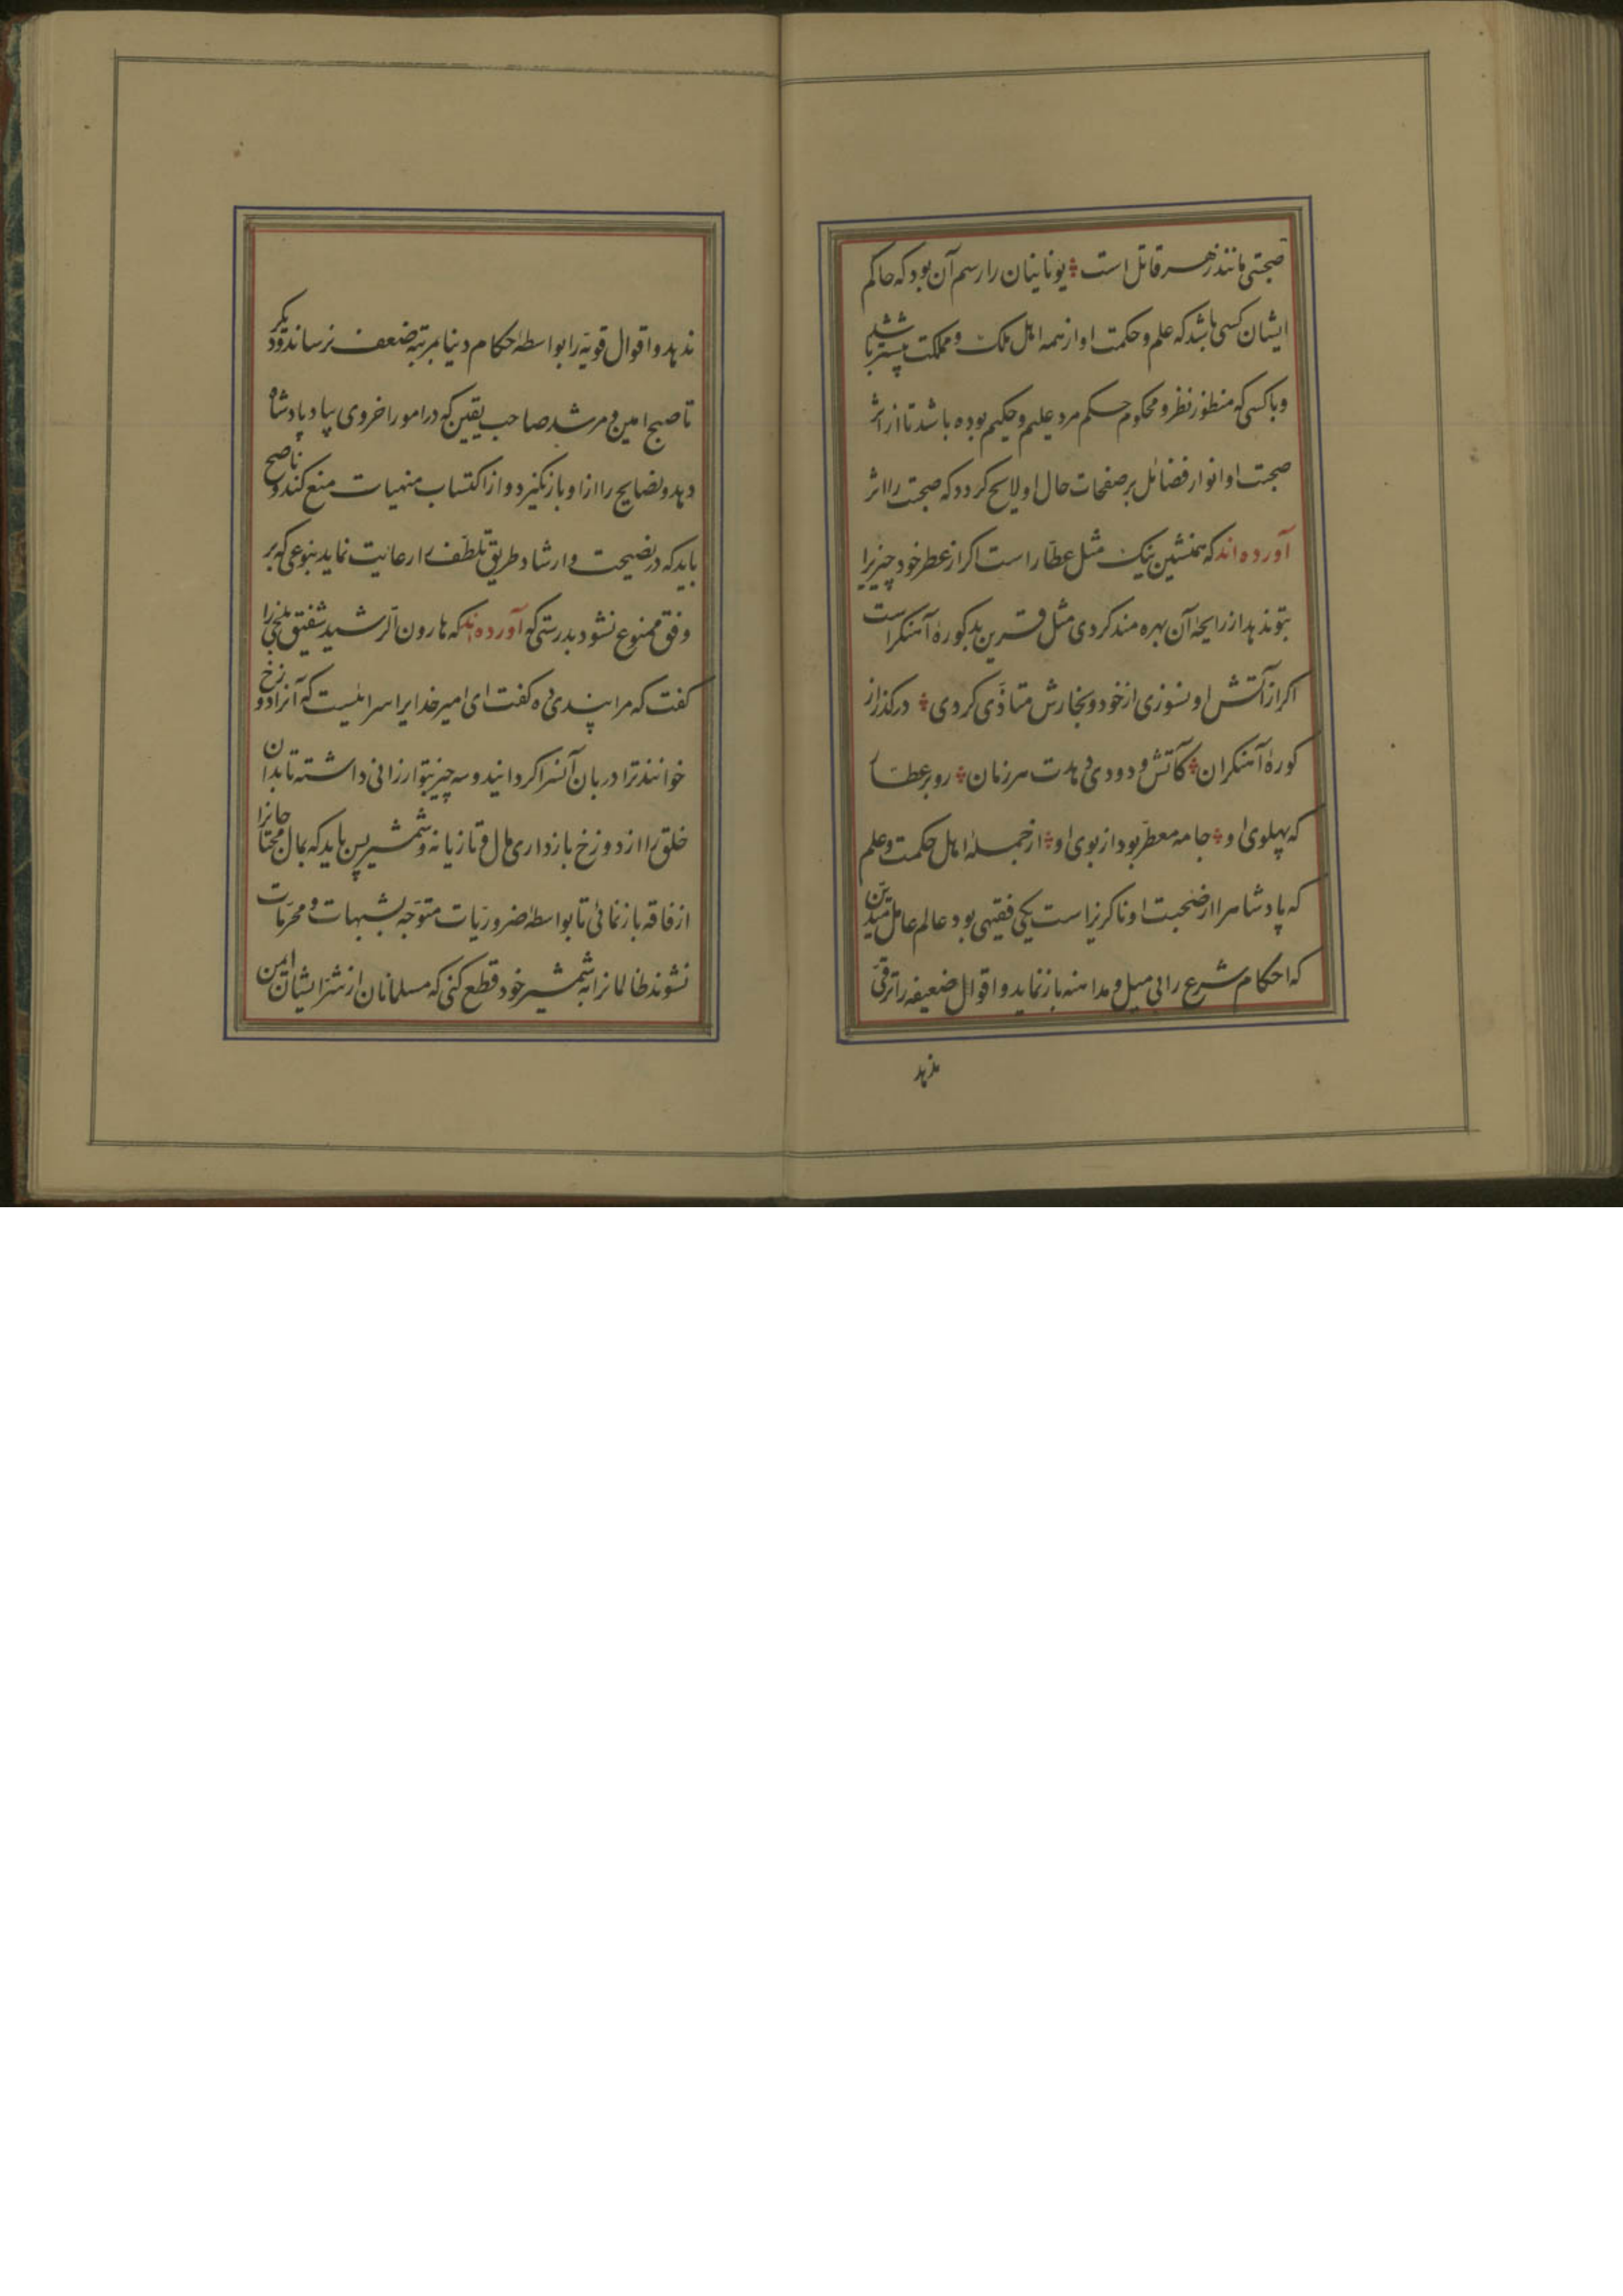 صحبتی مانند زهر قاتل است یونانیان را رسم آن بود که حاکم
ایشان کسی باشد که علم و حکمت او از همه اهل ملک و مملکت بیشتر باشد
و با کسی که منظور نظر و محکوم حکم مرد علیم و حکیم بوده باشد تا از اثر
صحبت او انوار فضائل بر صفحات حال او لایح کردد که صحبت را اثر
آورده اند که همنشین نیک مثل عطار است اکر از عطر خود چیزیرا
بتو ندهد از رایحهٔ آن بهره مند کردی مثل قرین بد کورهٔ آهنکر است
اکر از آتش او نسوزی از خود و بخارش متاذّی کردی در کذر از
کورهٔ آهنکران کآتش و دودی دهدت هر زمان رو بر عطار
که پهلوی او جامه معطّر بود از بوی او از جملهٔ اهل حکمت و علم
که پادشاهرا از صحبت او ناکریز است یکی فقیهی بود عالم عامل متدیّن
که احکام شرع را بی میل و مداهنه باز نماید و اقوال ضعیفه را ترقّی
ندهد
ندهد و اقوال قویّه را بواسطهٔ حکام دنیا بمرتبهٔ ضعف نرساند و دیکر
ناصح امین و مرشد صاحب یقین که در امور اخروی بیاد پادشاه
دهد و نصایح را از او باز نکیرد و از اکتساب منهیات منع کند و ناصح
باید که در نصیحت و ارشاد طریق تلطّف را رعایت نماید بنوعی که بر
وفق ممنوع نشود بدرستی که آورده اند که هارون الرّشید شفیق بلخی را
کفت که مرا پندی ده کفت ای امیر خدایرا سرائیست که آنرا دوزخ
خوانند ترا دربان آنسرا کردانید و سه چیز بتو ارزانی داشته تا بدان
خلق را از دوزخ باز داری مال و تازیانه و شمشیر پس باید که بمال محتاجانرا
از فاقه باز نمائی تا بواسطهٔ ضروریّات متوجّه بشبهات و محرّمات
نشوند ظالمانرا به شمشیر خود قطع کنی که مسلمانان از شرّ ایشان ایمن